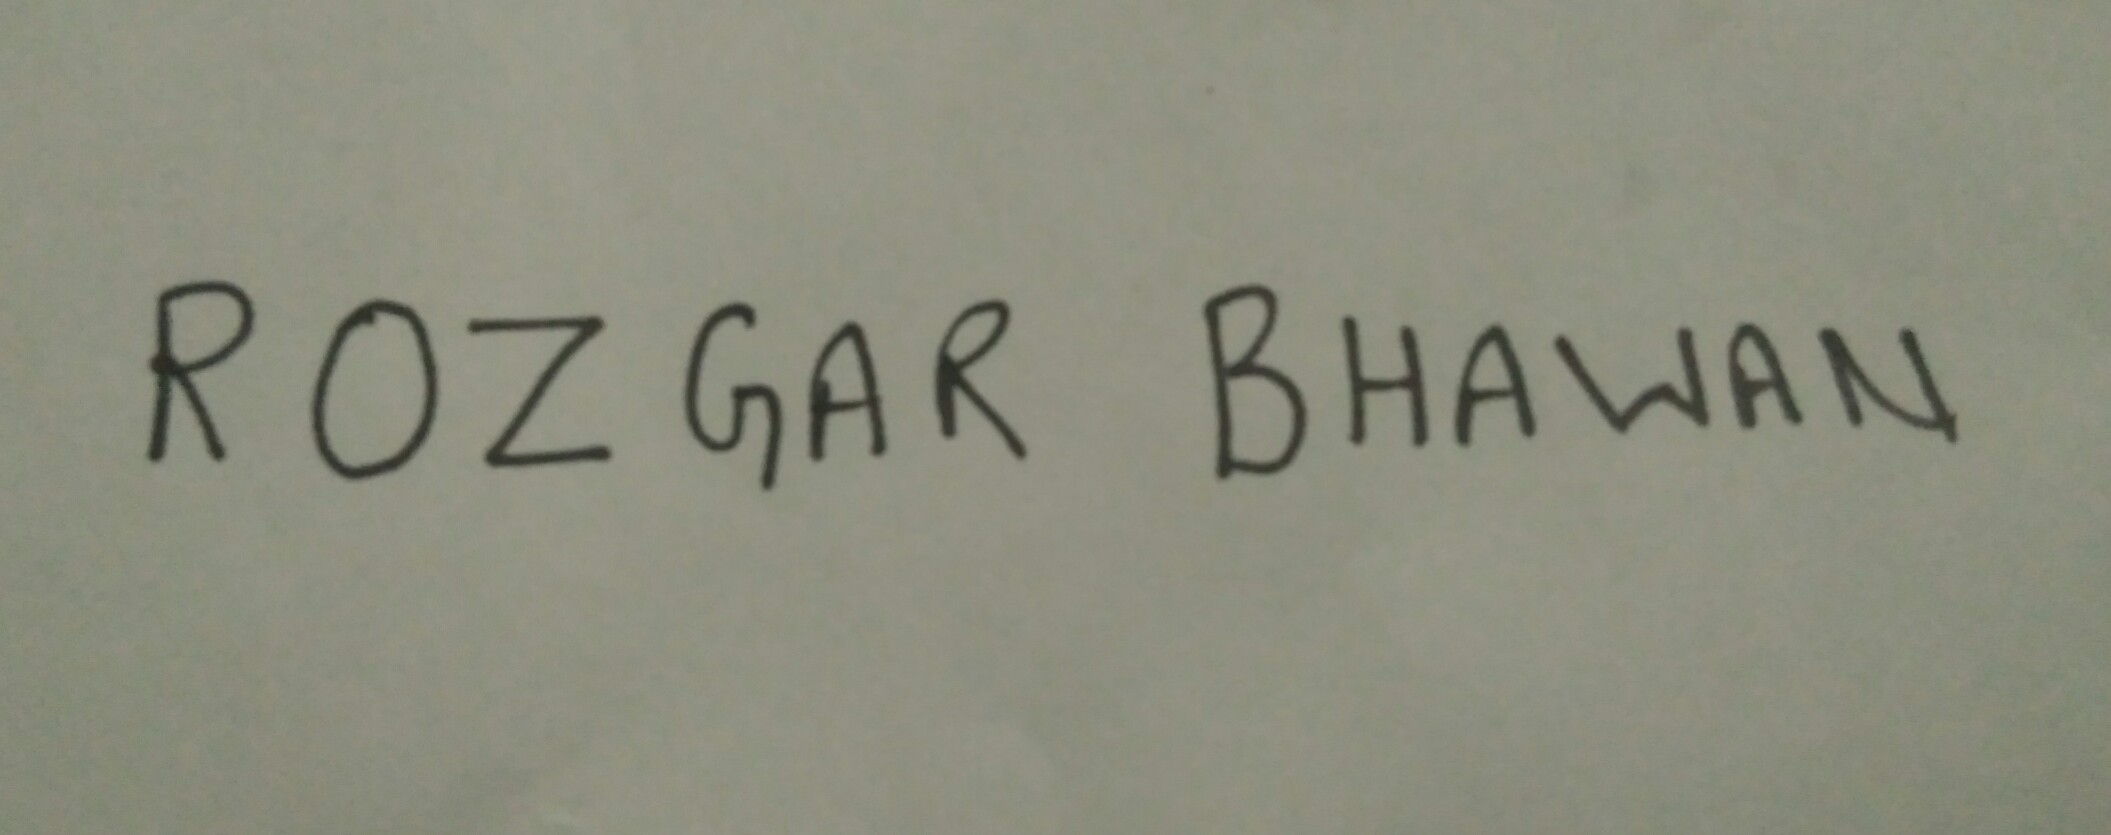 ROZGAR BHAWAN